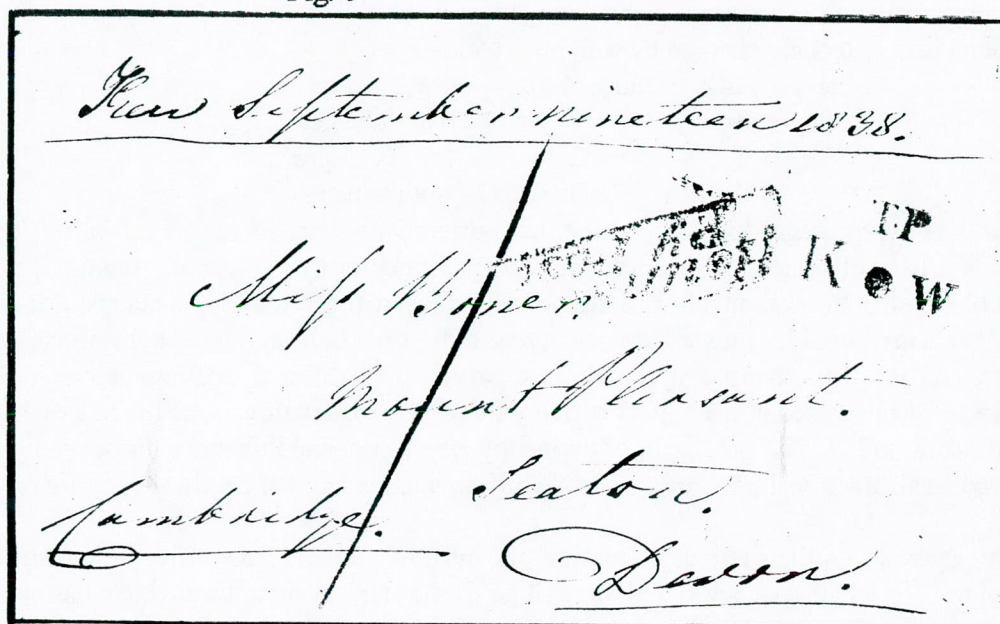 Kew September nineteen 1838.
TP
K W
Miſs Boner.
Mount Pleasant.
Seaton.
Cambridge.
Devon.